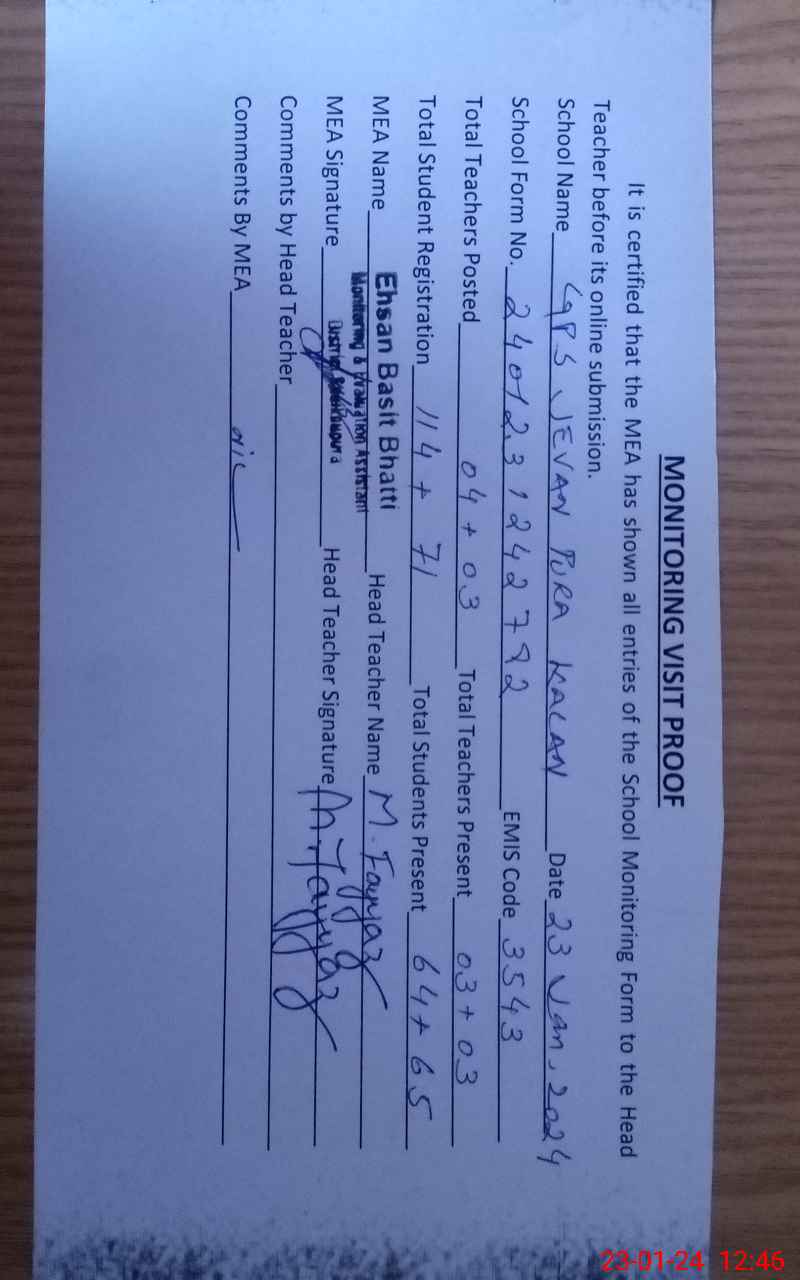 MONITORING VISIT PROOF
It is certified that the MEA has shown all entries of the School Monitoring Form to the Head
Teacher before its online submission.
School Name GPS JEVAN PURA KALAN Date 23 Jan, 2024
School Form No. 2401231242792 EMIS Code 3543
Total Teachers Posted 04 + 03 Total Teachers Present 03 + 03
Total Student Registration 114 + 71 Total Students Present 64 + 65
MEA Name Ehsan Basit Bhatti Head Teacher Name M. Fayyaz
Monitoring & Evaluation Assistant
MEA Signature District Sheikhupura Head Teacher Signature M. Fayyaz
Comments by Head Teacher
Comments By MEA nil
23-01-24 12:46